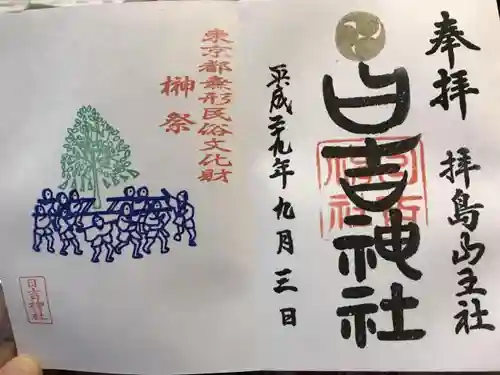 奉拝
拝島山王社
日吉神社
平成二十九年九月三日
東京都無形民俗文化財
榊祭
日吉神社